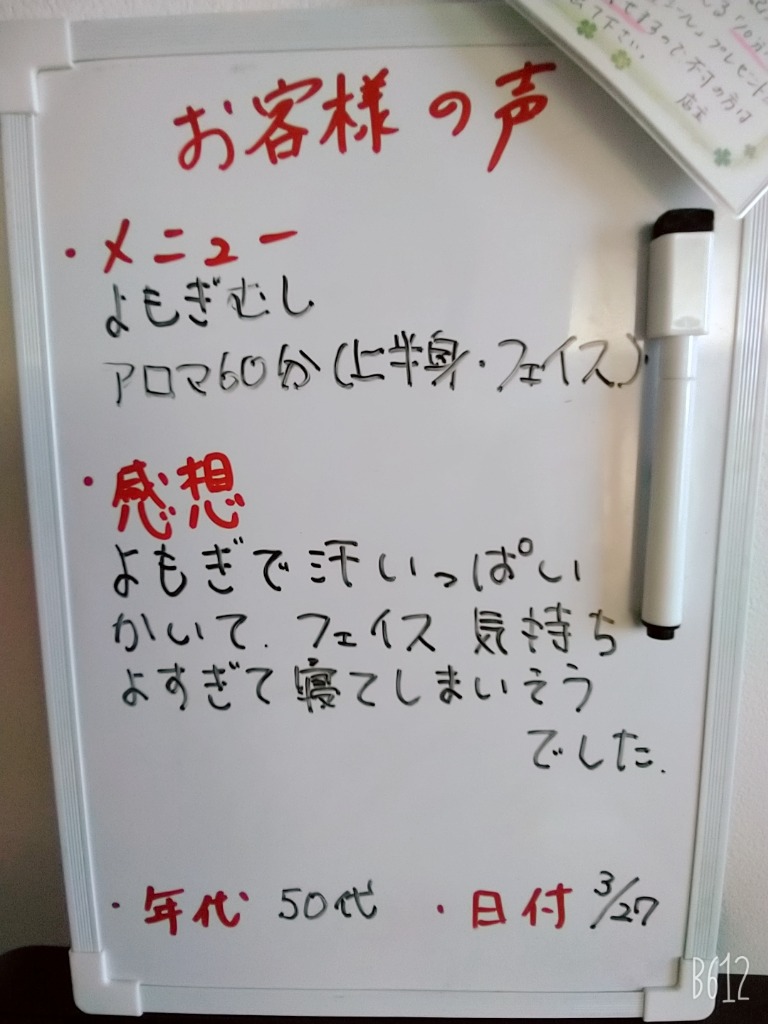 お客様の声
・メニュー
よもぎむし
アロマ60分(上半身・フェイス)
・感想
よもぎで汗いっぱい
かいて.フェイス 気持ち
よすぎて寝てしまいそう
でした.
・年代 50代 ・日付 3/27
プレゼント
ますので、不可の方は
て下さい。
店主
B612